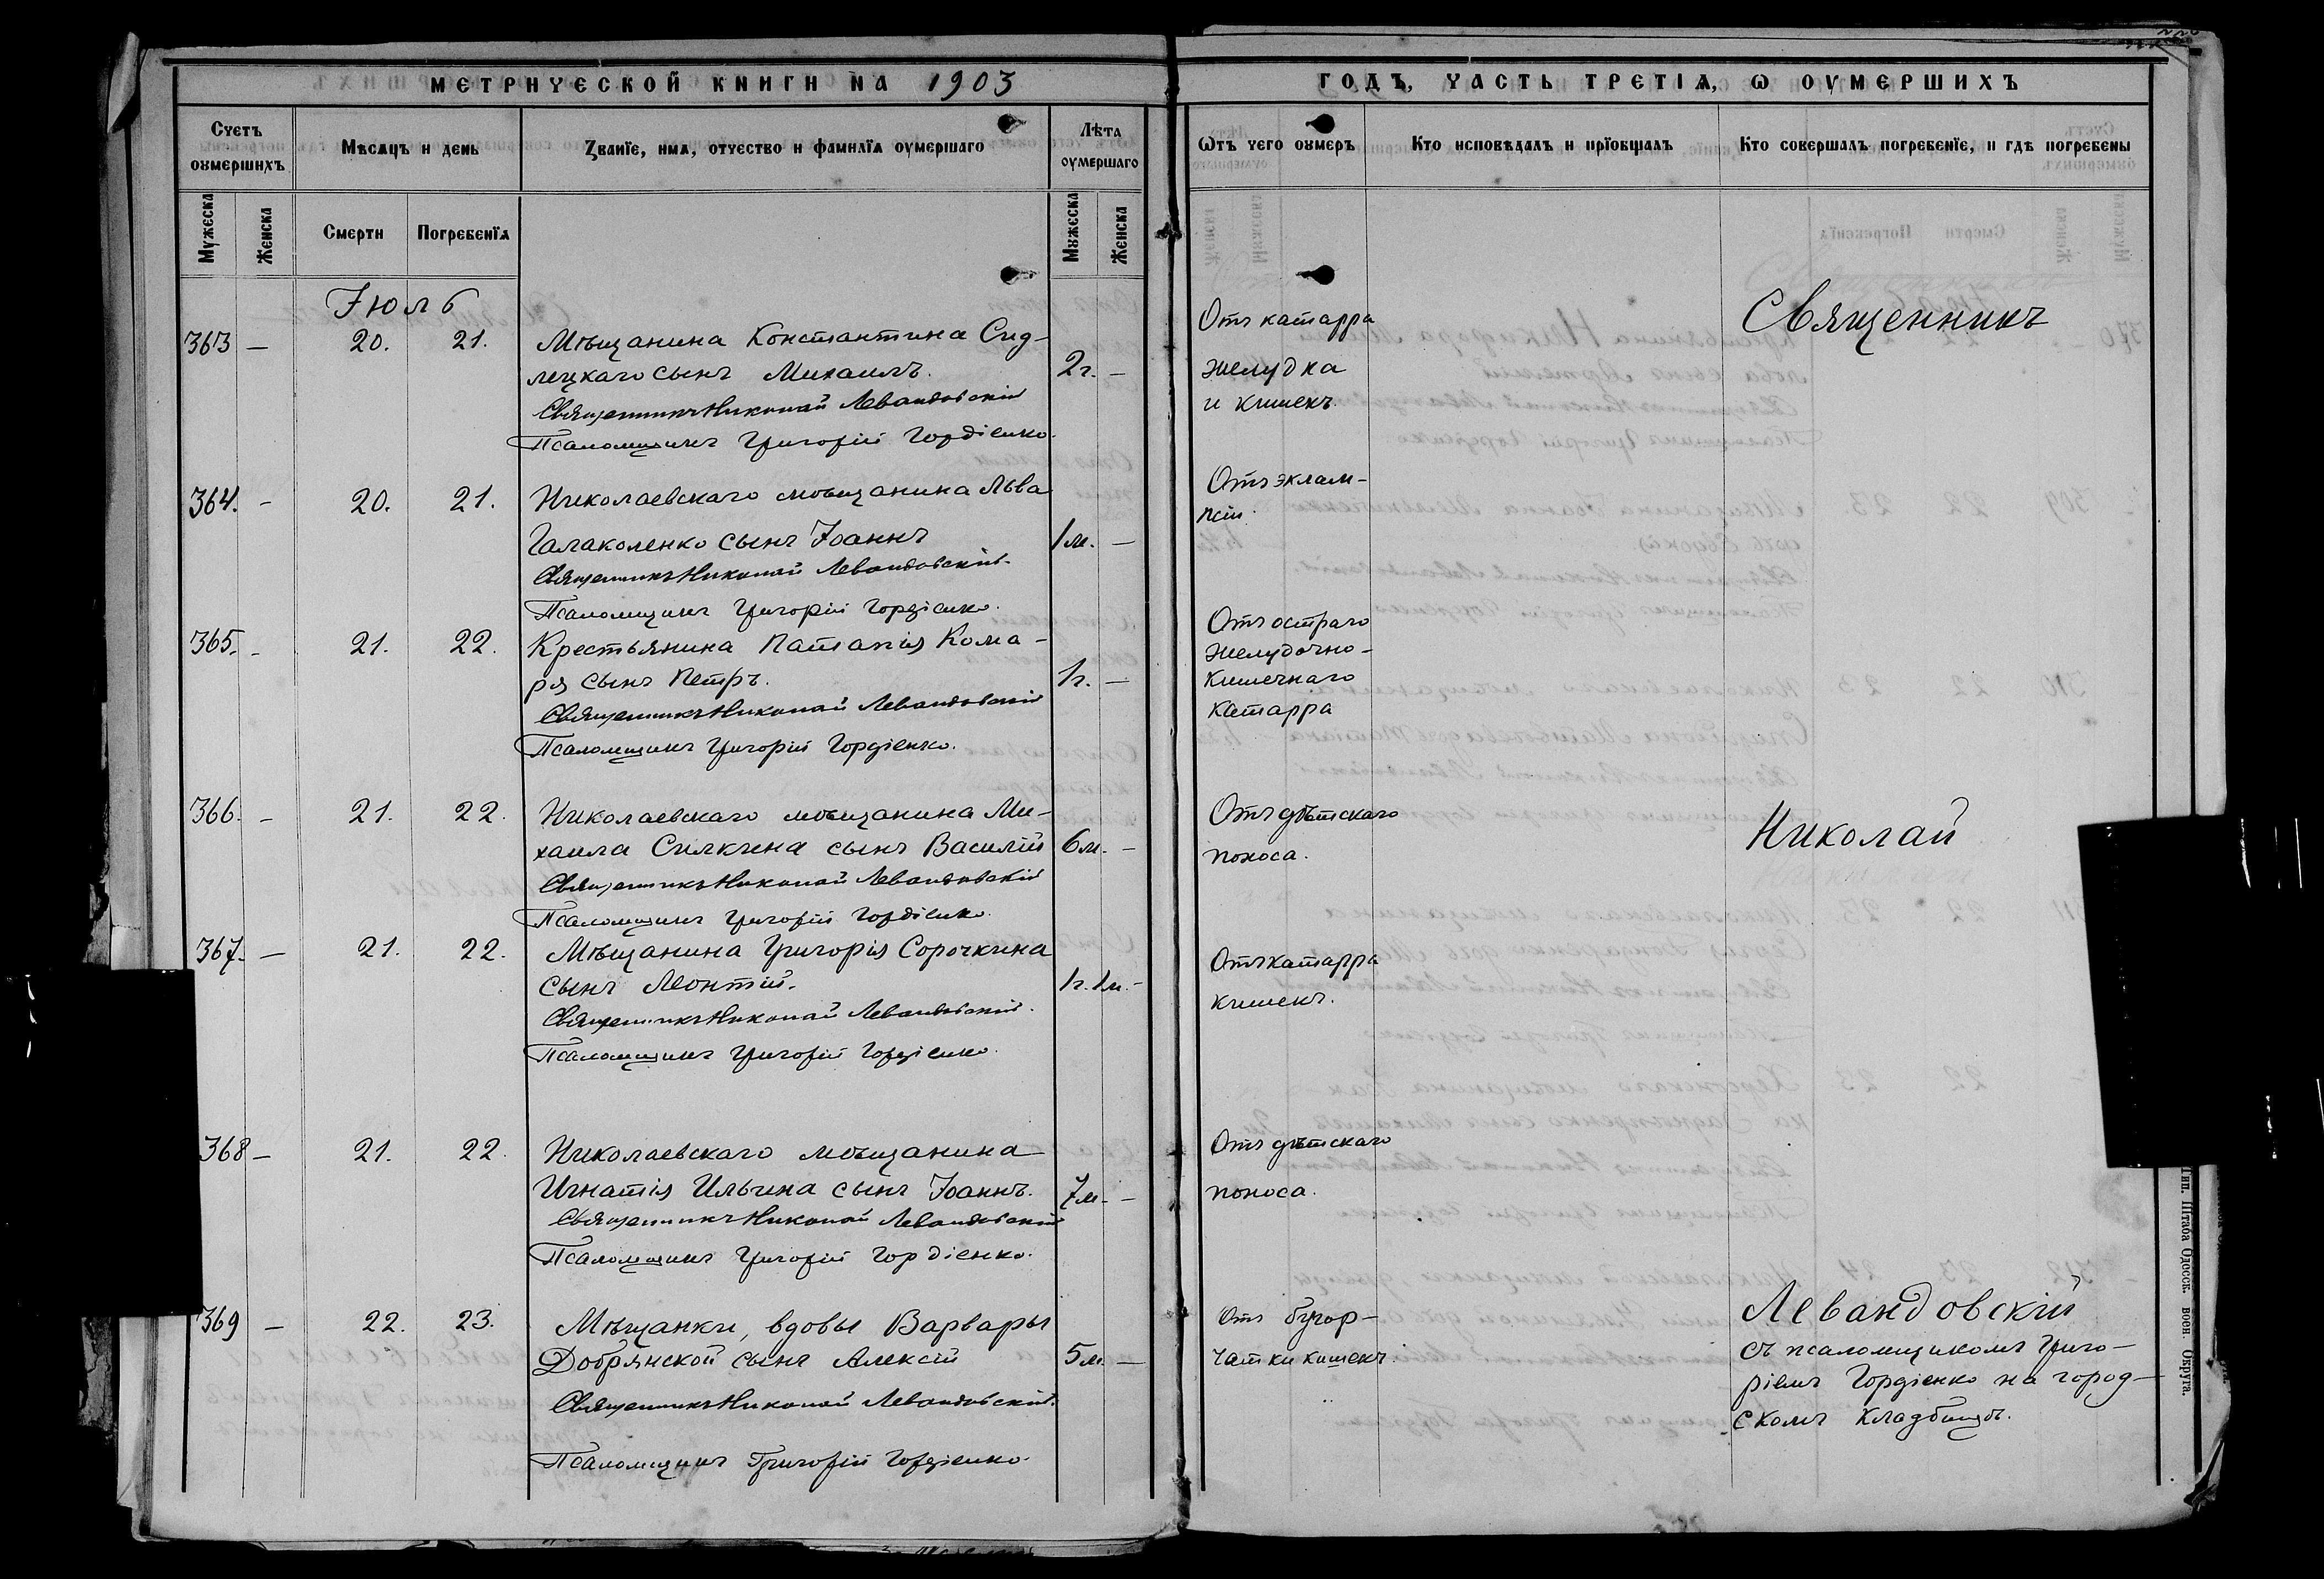 МЕТРИЧЕСКОЙ КНИГИ НА 1903
ГОДЪ, ЧАСТЬ ТРЕТІЯ, Ѡ ОУМЕРШИХЪ
Счетъ оумершихъ
Мѣсяцъ и день
Званїе, имя, отчество и фамилїя оумершаго
Лѣта оумершаго
Ѿтъ чего оумеръ
Кто исповѣдалъ и прїобщалъ
Кто совершалъ погребенїе, и гдѣ погребены
Мужеска
Женска
Смерти
Погребенїя
Мужеска
Женска
Іюль
363 — 20. 21. Мѣщанина Константина Сид-
лецкаго сынъ Михаилъ. 2г. —
Священникъ Николай Левандовскій
Псаломщикъ Григорій Гордіенко.
Отъ катарра
желудка
и кишекъ.
364. - 20. 21. Николаевскаго мѣщанина Льва
Галаколенко сынъ Іоаннъ 1м. —
Священникъ Николай Левандовскій.
Псаломщикъ Григорій Гордіенко.
Отъ эклам-
псіи.
365. - 21. 22. Крестьянина Патапія Кома-
ря сынъ Петръ. 1г. —
Священникъ Николай Левандовскій
Псаломщикъ Григорій Гордіенко.
Отъ остраго
желудочно-
кишечнаго
катарра
366. - 21. 22. Николаевскаго мѣщанина Ми-
хаила Силкина сынъ Василій 6м. -
Священникъ Николай Левандовскій
Псаломщикъ Григорій Гордіенко.
Отъ дѣтскаго
поноса.
367. — 21. 22. Мѣщанина Григорія Сорочкина
сынъ Леонтій. 1г. 1м. -
Священникъ Николай Левандовскій.
Псаломщикъ Григорій Гордіенко.
Отъ катарра
кишекъ.
368 — 21. 22. Николаевскаго мѣщанина
Игнатія Ильина сынъ Іоаннъ. 7м. -
Священникъ Николай Левандовскій
Псаломщикъ Григорій Гордіенко.
Отъ дѣтскаго
поноса.
369 — 22. 23. Мѣщанки, вдовы Варвары
Добрянской сынъ Алексій 5м. —
Священникъ Николай Левандовскій.
Псаломщикъ Григорій Гордіенко.
Отъ бугор-
чатки кишекъ.
Священникъ
Николай
Левандовскій
съ псаломщикомъ Григо-
ріемъ Гордіенко на город-
скомъ кладбищѣ.
Тип. Штаба Одесск. воен. Округа.